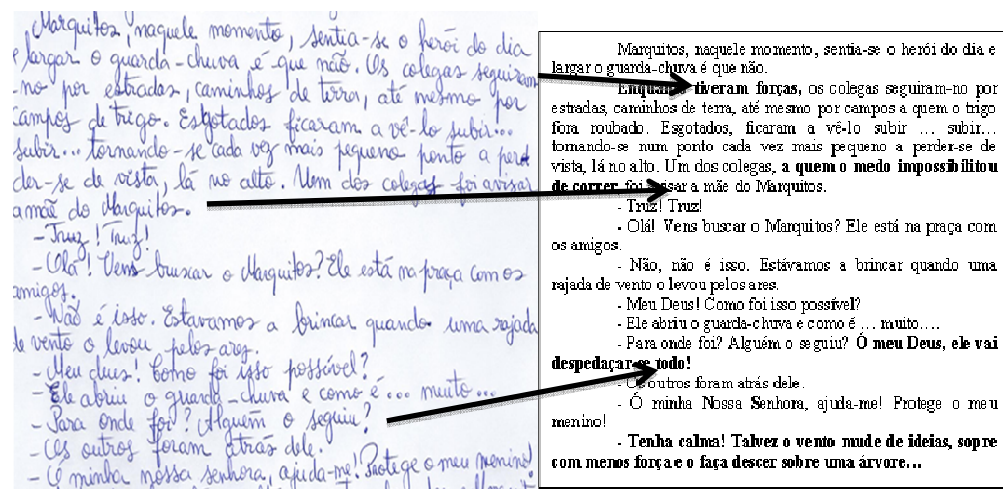 Marquitos, naquele momento, sentia-se o herói do dia
e largar o guarda-chuva é que não. Os colegas seguiram
-no por estradas, caminhos de terra, até mesmo por
campos de trigo. Esgotados ficaram a vê-lo subir...
subir... tornando-se cada vez mais pequeno ponto a per
der-se de vista, lá no alto. Um dos colegas foi avisar
a mãe do Marquitos.
- Truz! Truz!
- Olá! Vens buscar o Marquitos? Ele está na praça com os
amigos.
- Não é isso. Estavamos a brincar quando uma rajada
de vento o levou pelos ares.
- Meu deus! Como foi isso possível?
- Ele abriu o guarda-chuva e como é ... muito...
- Para onde foi? Alguém o seguiu?
- Os outros foram atrás dele.
- Ó minha nossa senhora, ajuda-me! Protege o meu menino!
Marquitos, naquele momento, sentia-se o herói do dia e
largar o guarda-chuva é que não.
Enquanto tiveram forças, os colegas seguiram-no por
estradas, caminhos de terra, até mesmo por campos a quem o trigo
fora roubado. Esgotados, ficaram a vê-lo subir ... subir...
tornando-se num ponto cada vez mais pequeno a perder-se de
vista, lá no alto. Um dos colegas, a quem o medo impossibilitou
de correr, foi avisar a mãe do Marquitos.
- Truz! Truz!
- Olá! Vens buscar o Marquitos? Ele está na praça com
os amigos.
- Não, não é isso. Estávamos a brincar quando uma
rajada de vento o levou pelos ares.
- Meu Deus! Como foi isso possível?
- Ele abriu o guarda-chuva e como é ... muito....
- Para onde foi? Alguém o seguiu? Ó meu Deus, ele vai
despedaçar-se todo!
- Os outros foram atrás dele.
- Ó minha Nossa Senhora, ajuda-me! Protege o meu
menino!
- Tenha calma! Talvez o vento mude de ideias, sopre
com menos força e o faça descer sobre uma árvore...